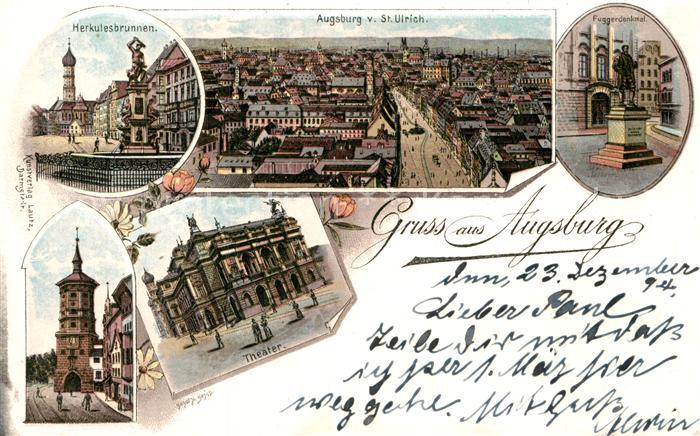 Herkulesbrunnen.
Augsburg v. St. Ulrich.
Fuggerdenkmal.
Kunstverlag Lautz,
Darmstadt.
Gruss aus Augsburg
den, 23. Dezember
94.
Lieber Paul
Teile Dir mit daß
ich per 1. März hier
weggehe. Mit Gruß
Alwin
Theater.